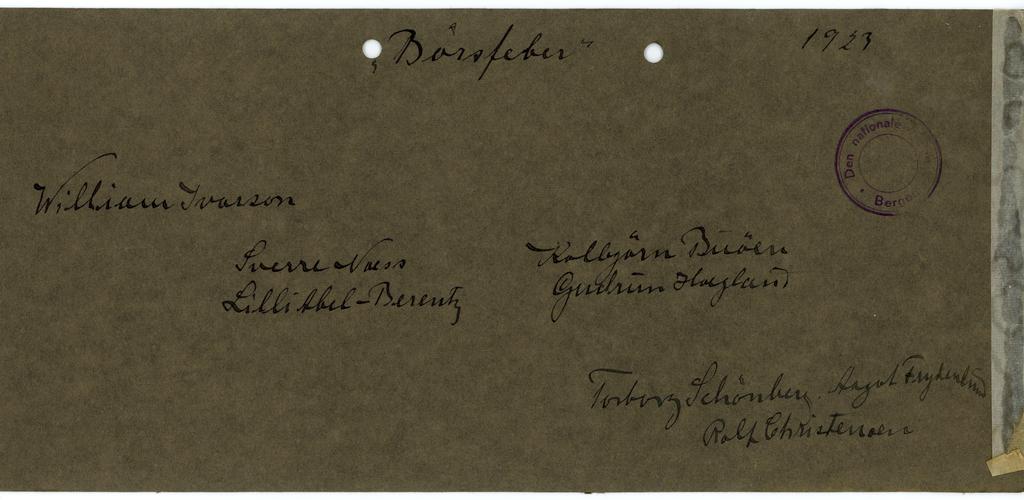 „Börsfeber" 1923
Den nationale
Berge
William Ivarson
Sverre Næss
Lilli Abel-Berentz
Kolbjörn Buöen
Gudrun Hoegland
Torborg Schönberg. Aagot Frydenlund
Rolf Christensen